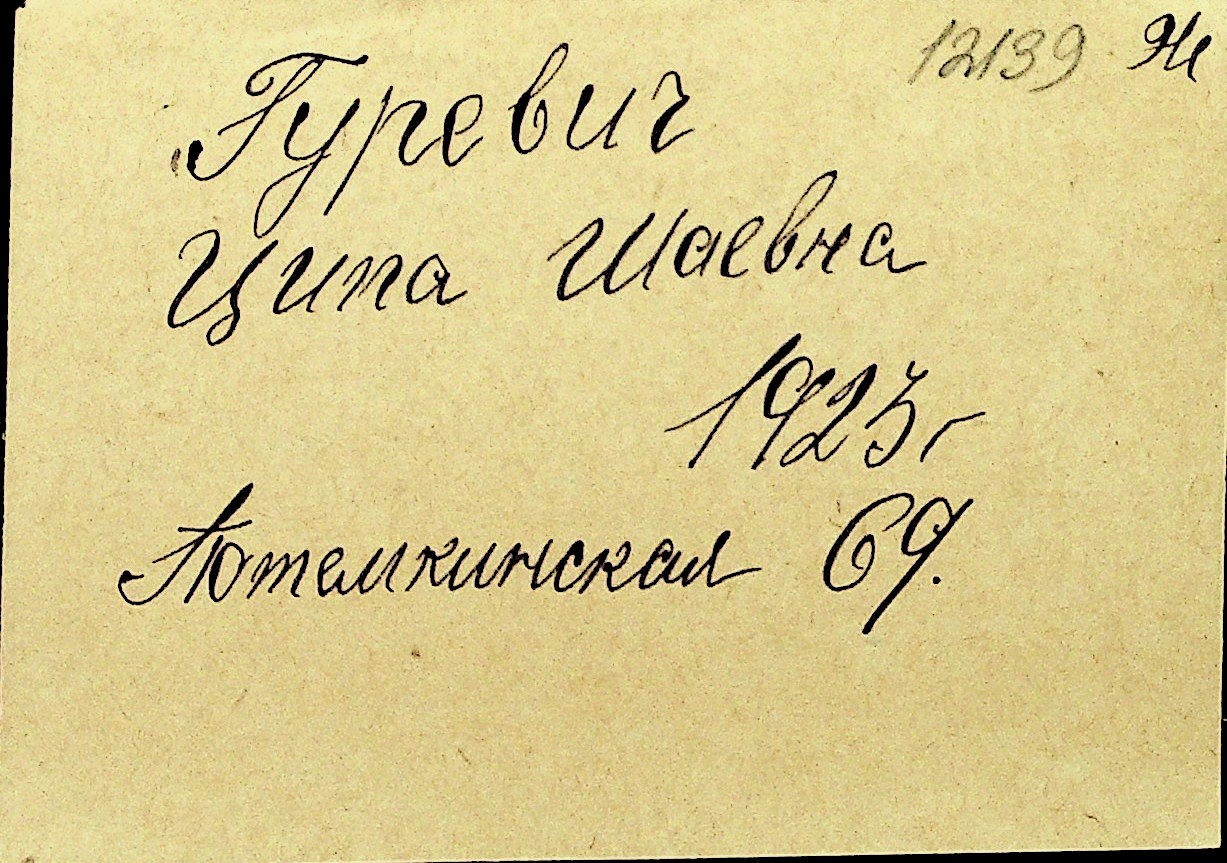 12139 Ж
Гуревич
Ципа Шаевна
1923 г
Потемкинская 69.